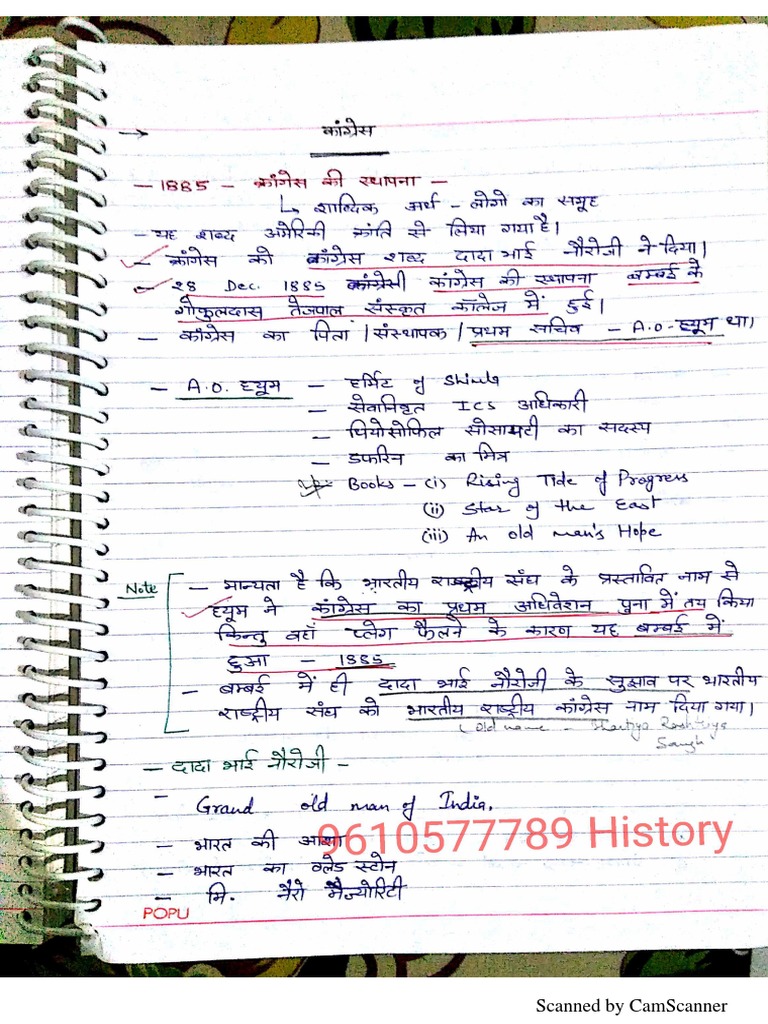 → कांग्रेस
— 1885 — कांग्रेस की स्थापना —
↳ शाब्दिक अर्थ - लोगो का समूह
- यह शब्द अमेरिकी क्रांति से लिया गया है।
- कांग्रेस को कांग्रेस शब्द दादा भाई नौरोजी ने दिया।
- 28 Dec. 1885 कांग्रेसी कांग्रेस की स्थापना बम्बई के
गोकुलदास तेजपाल संस्कृत कॉलेज में हुई।
- कांग्रेस का पिता / संस्थापक / प्रथम सचिव - A.O. ह्यूम था।
- A.O. ह्यूम - हर्मिट of Shimla
- सेवानिवृत ICS अधिकारी
- थियोसोफिल सोसायटी का सदस्य
- डफरिन का मित्र
Books - (i) Rising Tide of Progress
(ii) Star of the East
(iii) An old man's Hope
Note - मान्यता है कि भारतीय राष्ट्रीय संघ के प्रस्तावित नाम से
ह्यूम ने कांग्रेस का प्रथम अधिवेशन पुना में तय किया
किन्तु वहाँ प्लेग फैलने के कारण यह बम्बई में
हुआ - 1885
- बम्बई में ही दादा भाई नौरोजी के सुझाव पर भारतीय
राष्ट्रीय संघ को भारतीय राष्ट्रीय कांग्रेस नाम दिया गया।
(old name - Bhartiya Rashtriya
Sangh
- दादा भाई नौरोजी -
- Grand old man of India.
- भारत की आशा
9610577789 History
- भारत का ग्लेड स्टोन
- मि. नैरो मैज्योरिटी
POPU
Scanned by CamScanner